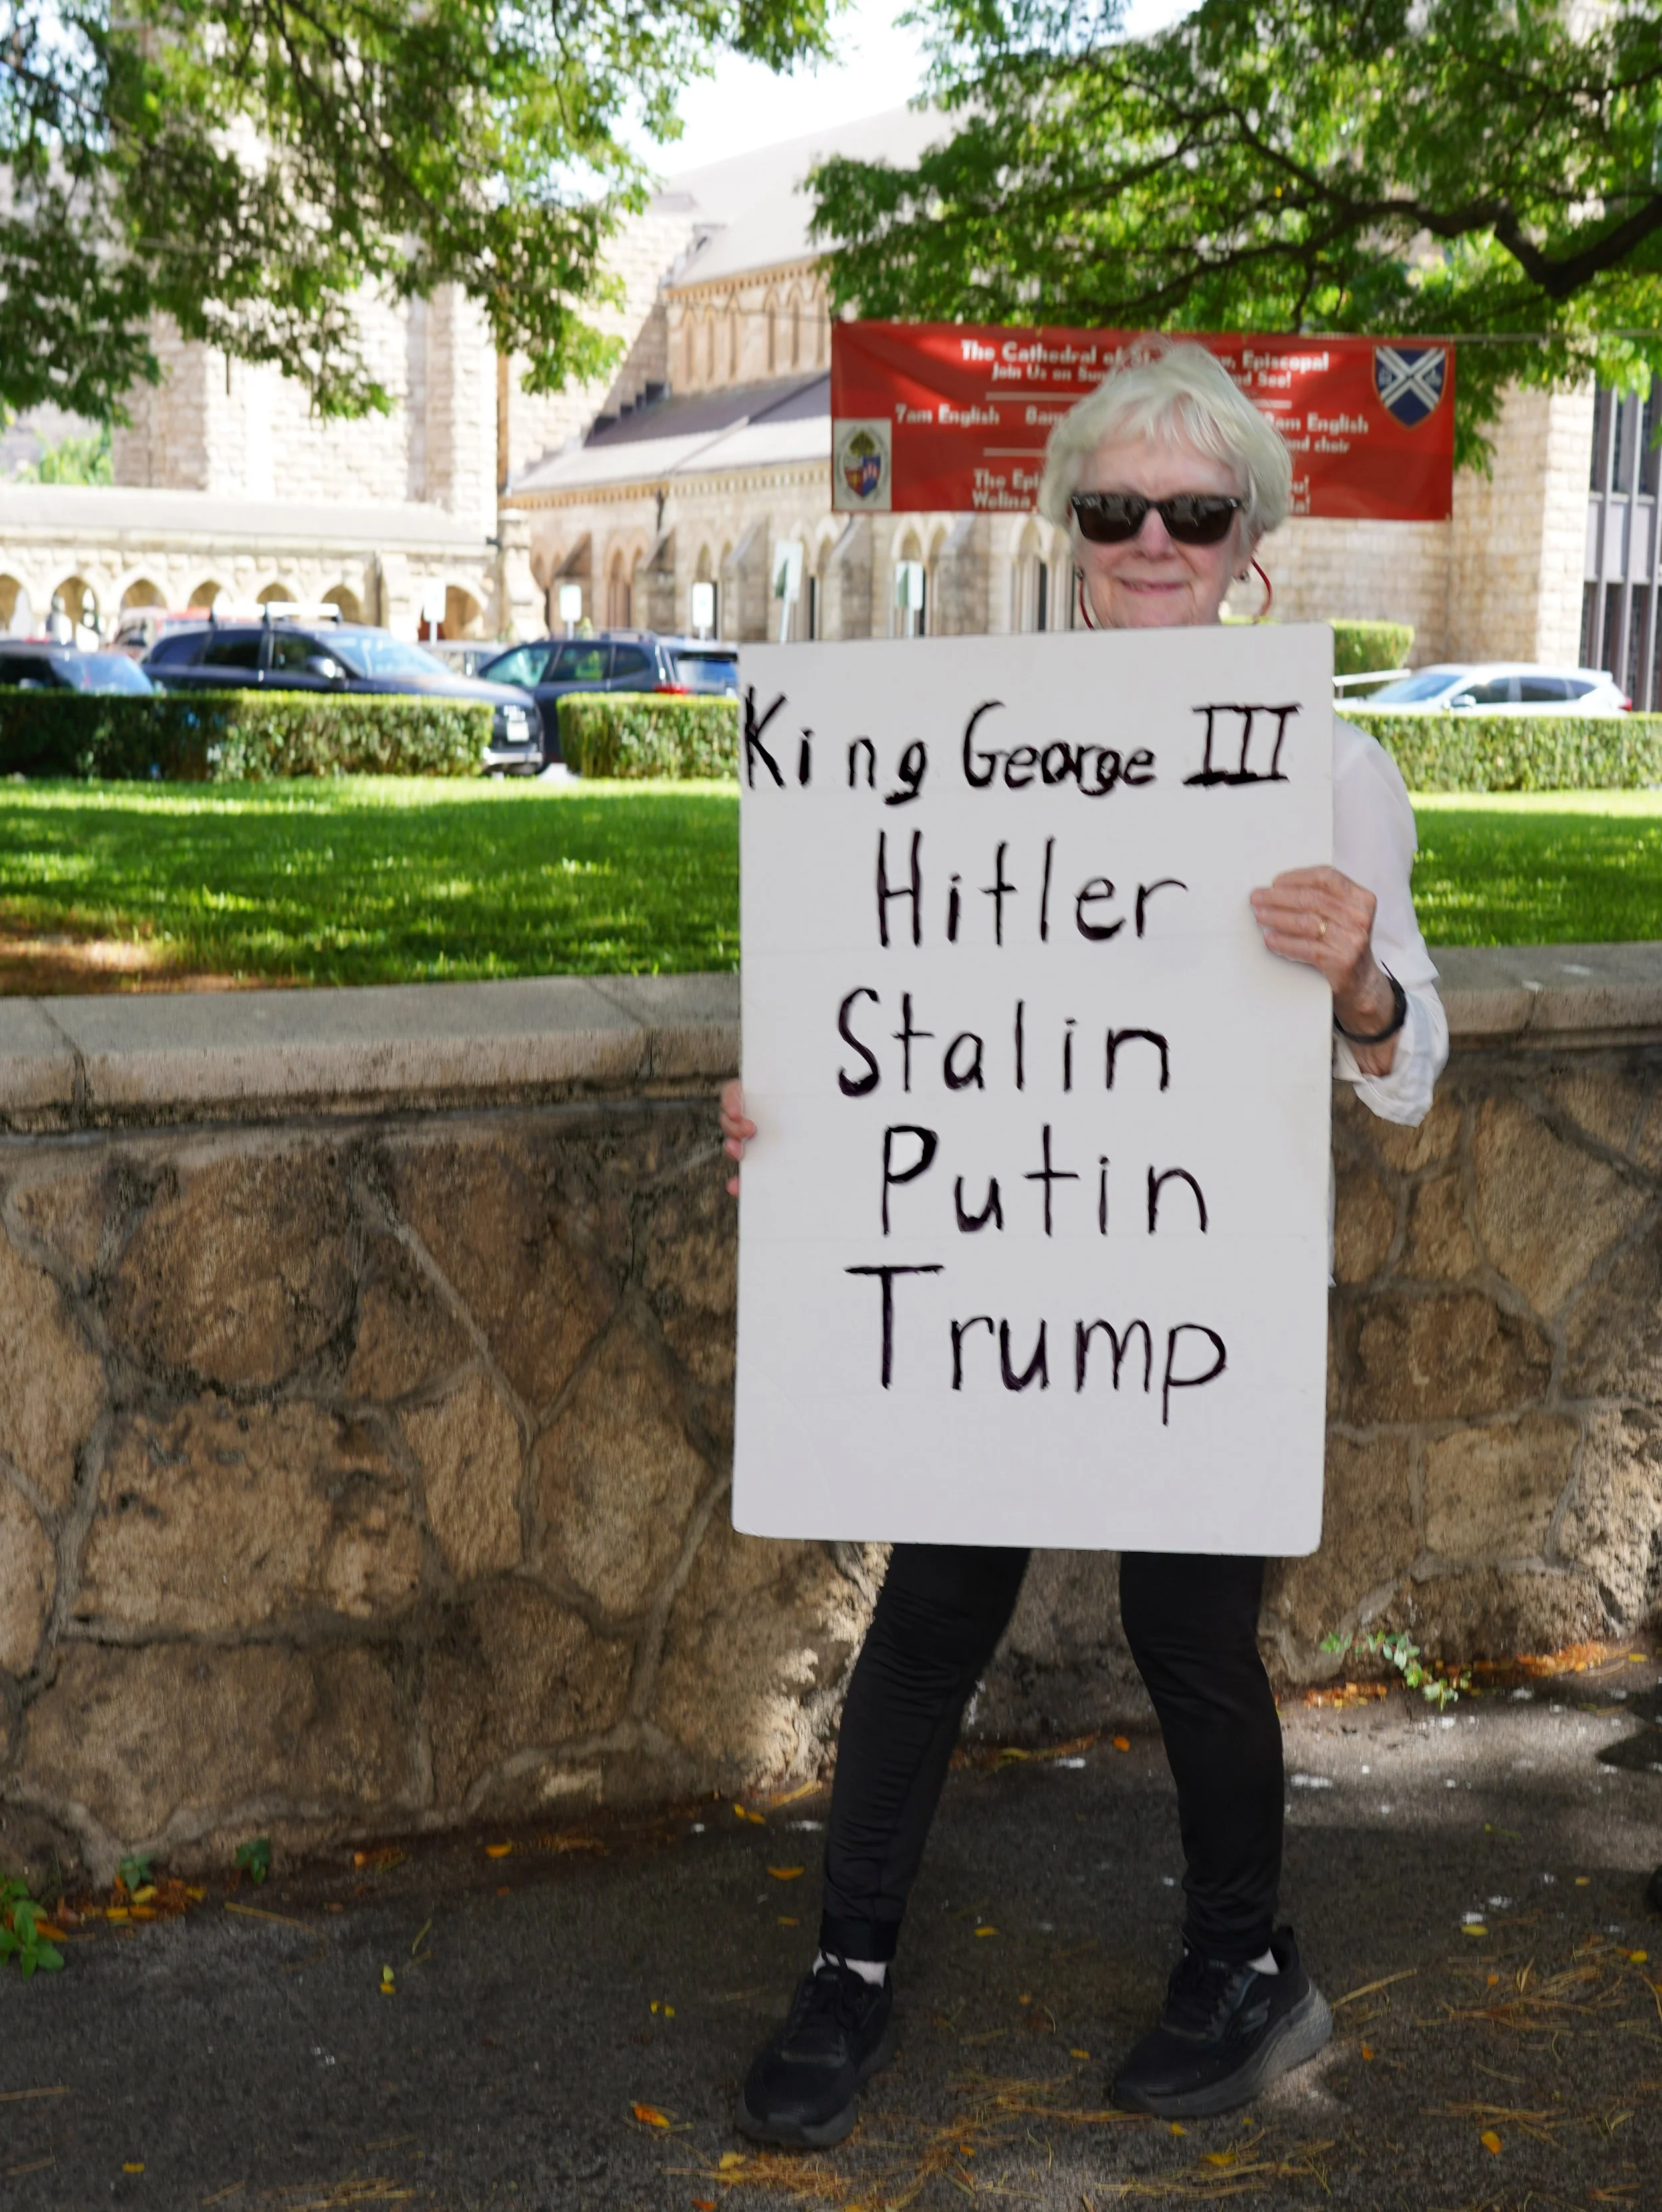 The Cathedral of St. w, Episcopal
Join Us on Sun nd See!
7am English 8am am English
nd choir
The Epi u!
Welina la!
King George III
Hitler
Stalin
Putin
Trump